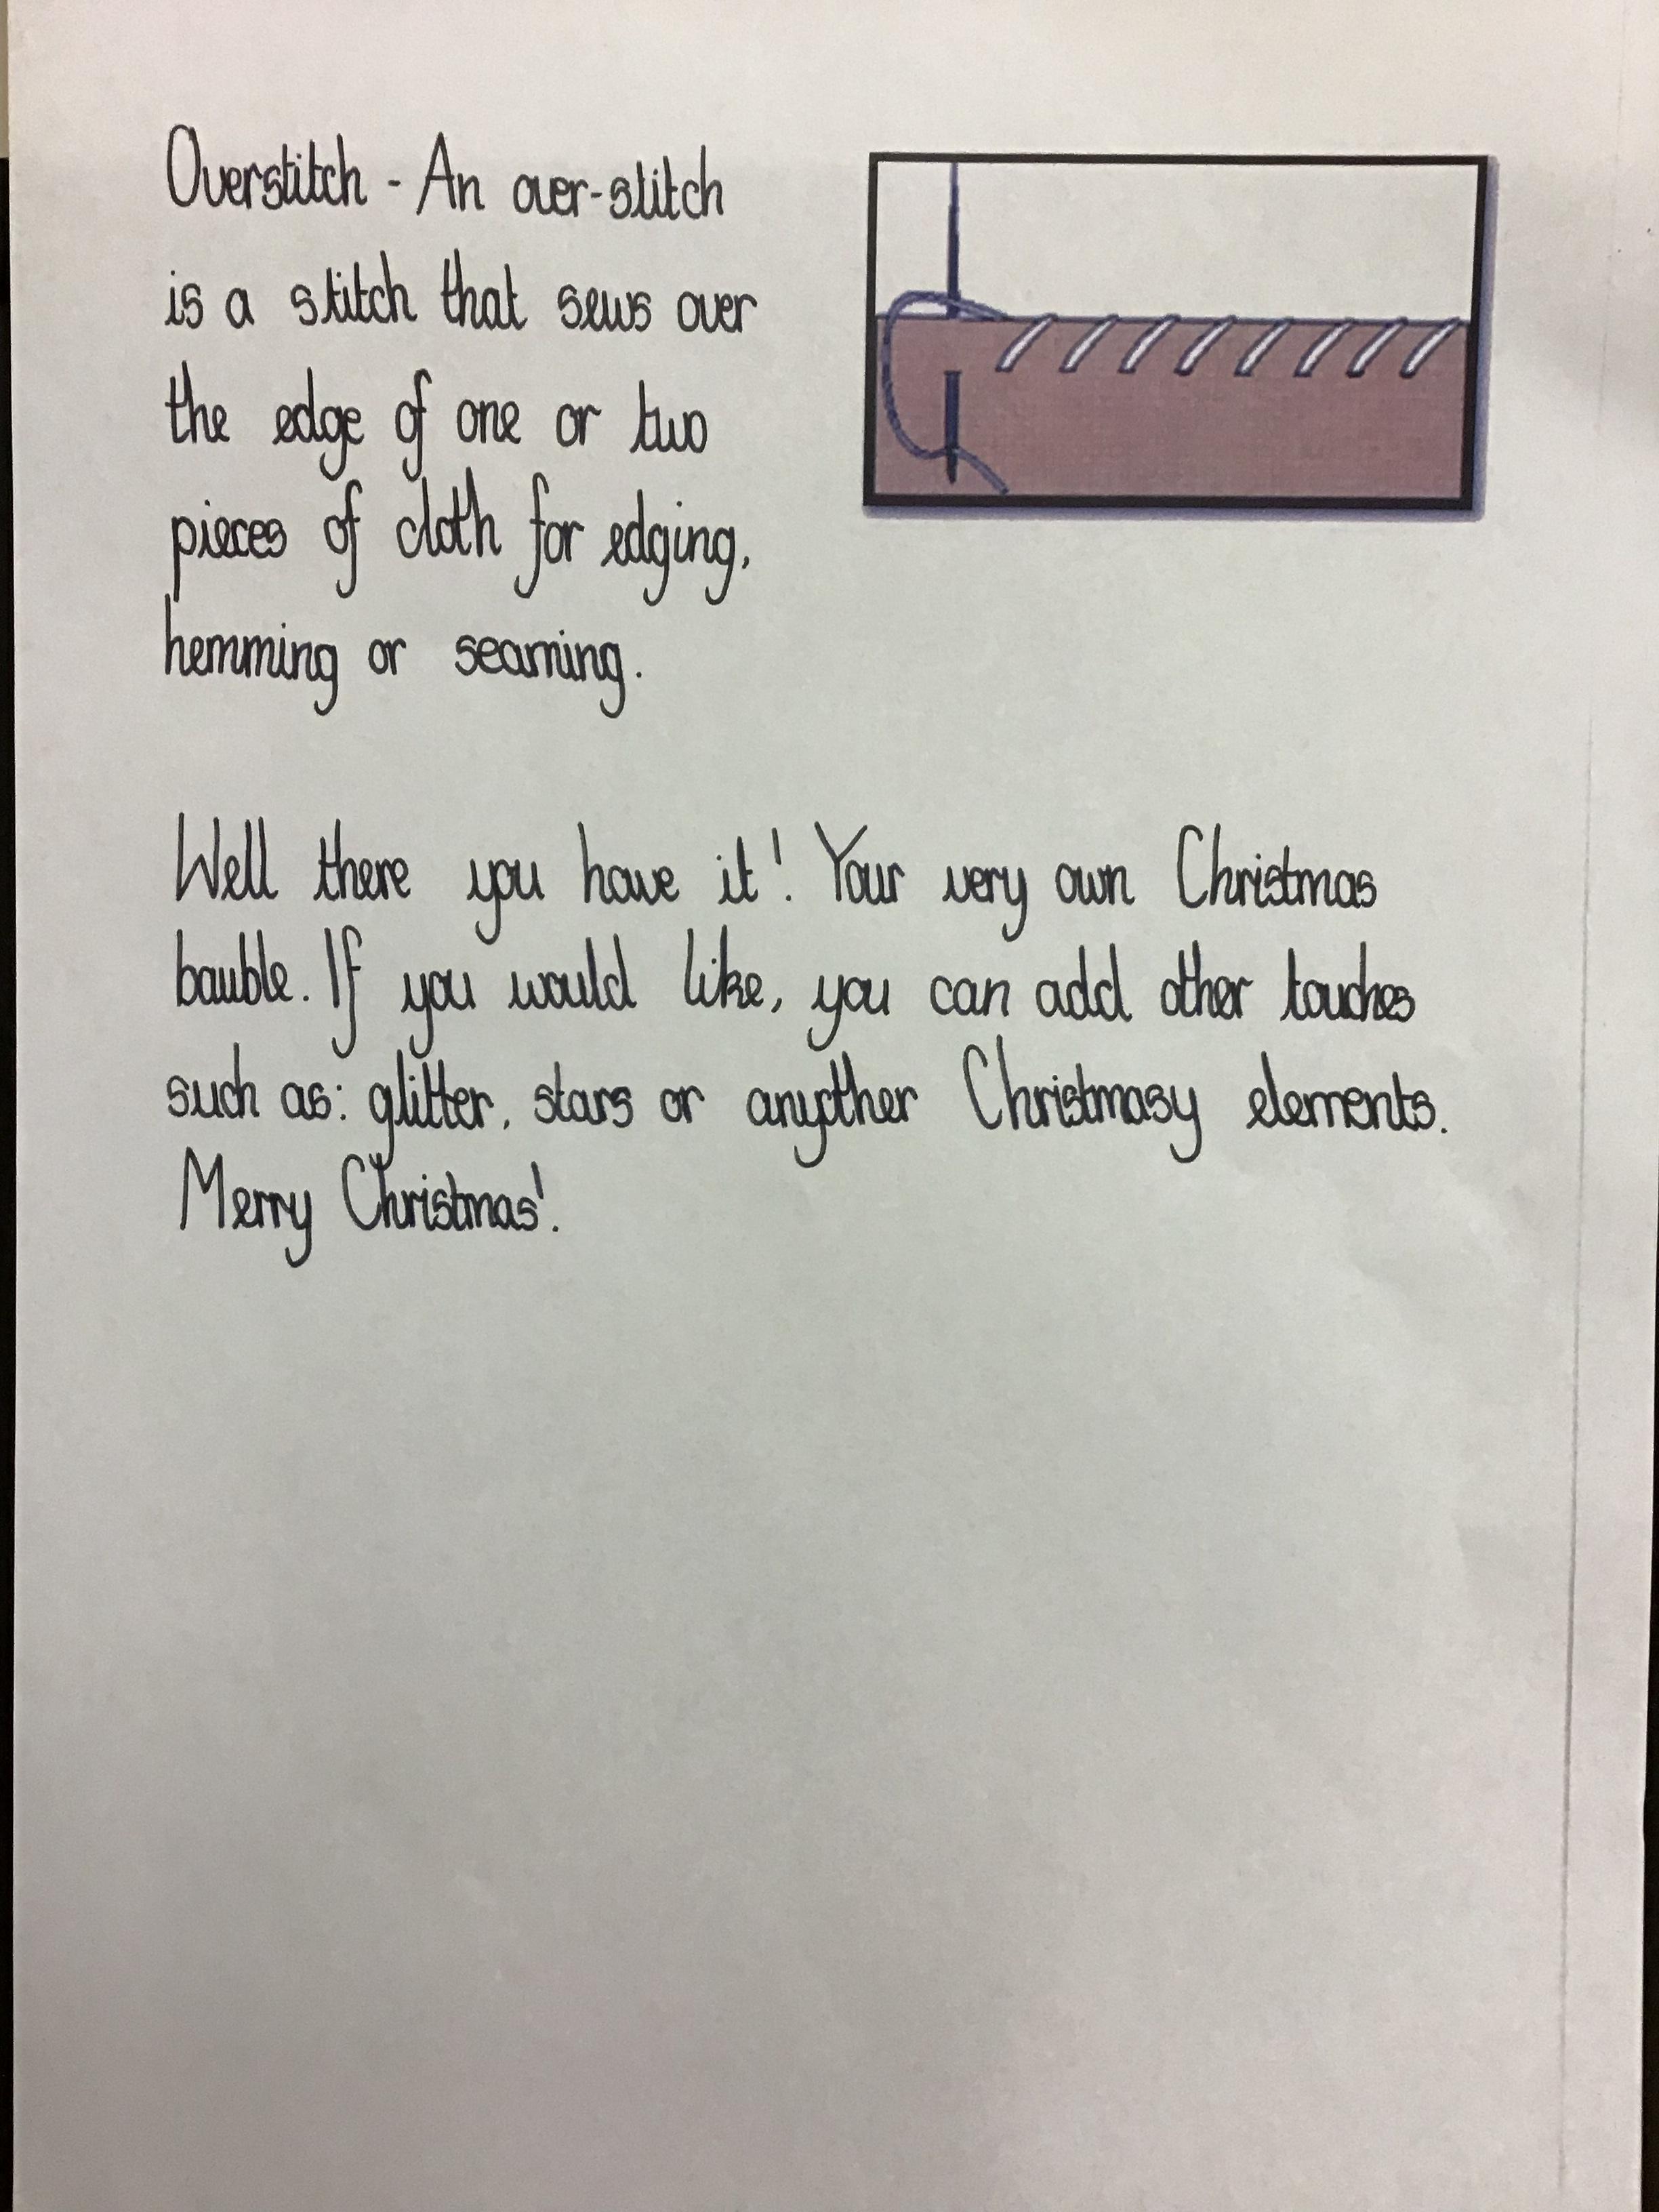 Overstitch - An over-stitch
is a stitch that sews over
the edge of one or two
pieces of cloth for edging,
hemming or seaming.
Well there you have it! Your very own Christmas
bauble. If you would like, you can add other touches
such as: glitter, stars or anyother Christmasy elements.
Merry Christmas!